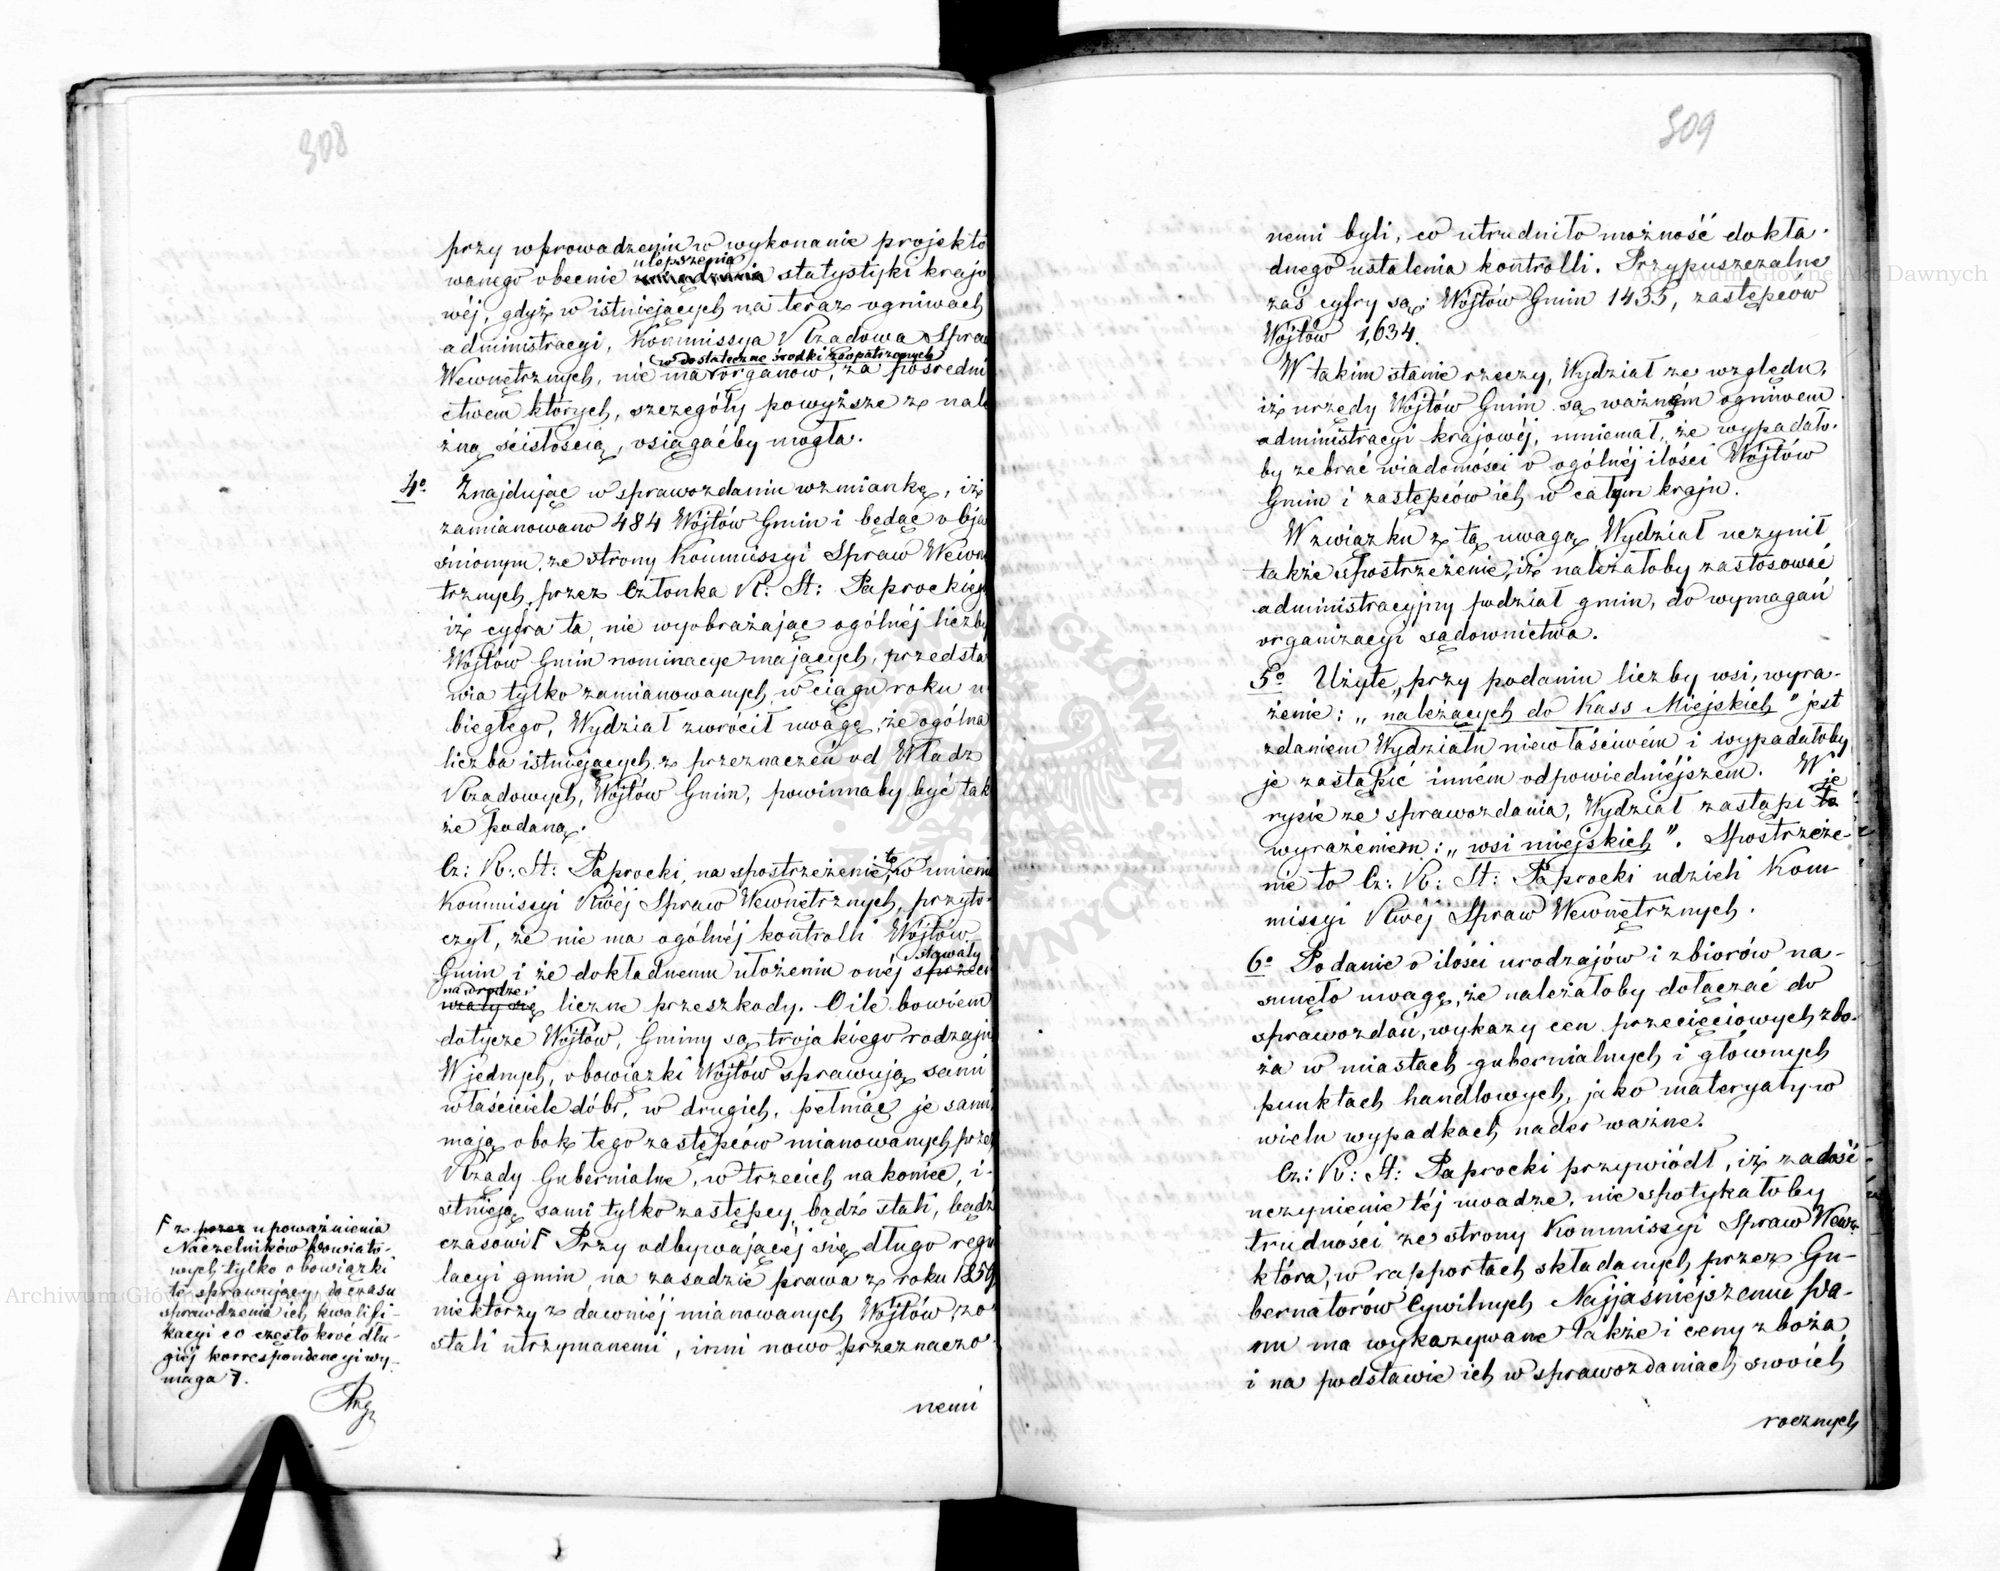 308
przy wprowadzeniu w wykonanie projekto
wanego obecnie urządzenia ulepszenia statystyki krajo
wéj, gdyż w istniejących na teraz ogniwach
administracyi, Kommissya Rządowa Spraw
Wewnętrznych, nie ma w dostateczne środki zaopatrzonych organów, za pośredni
ctwem których, szczegóły powyższe z nale
żną ścisłością, osiągaćby mogła.
4o Znajdując w sprawozdaniu wzmiankę, iż
zamianowano 484 Wójtów Gmin i będąc obja
śnionym, ze strony Kommissyi Spraw Wewnę
trznych, przez Członka R: St: Paprockiego
iż cyfra ta, nie wyobrażając ogólnéj liczby
Wójtów Gmin nominacye mających, przedsta
wia tylko zamianowanych w ciągu roku u
biegłego, Wydział zwrócił uwagę, że ogólna
liczba istniejących z przeznaczeń od Władz
Rządowych, Wójtów Gmin, powinnaby być tak
że podaną.
Cz: R: St: Paprocki, na spostrzeżenie to, w imieniu
Kommissyi Rwéj Spraw Wewnętrznych, przyto-
czył, że nie ma ogólnéj kontrolli Wójtów
Gmin i że dokładnemu ułożeniu onéj sprzeci stawały
wiały się na drodze liczne przeszkody. O ile bowiem
dotycze Wójtów, Gminy są trojakiego rodzaju
W jednych, obowiązki Wójtów sprawują sami
właściciele dóbr, w drugich, pełniąc je sami,
mają obok tego zastępców mianowanych przez
Rządy Gubernialne, w trzecich nakoniec, i-
stnieją sami tylko zastępcy, bądź stali, bądź
czasowi Ϝ Przy odbywającéj się długo regu
lacyi gmin, na zasadzie prawa z roku 1859,
niektórzy z dawniéj mianowanych Wójtów, zo
stali utrzymanemi, inni nowo przeznaczo-
nemi
Ϝ z przez upoważnienia
Naczelników Powiato-
wych tylko obowiązki
te sprawujący do czasu
sprawdzenia ich kwalifi-
kacyi co częstokroć dłu-
giéj korrespondencyi wy-
maga
309
nemi byli, co utrudniło możność dokła-
dnego ustalenia kontrolli. Przypuszczalne
zaś cyfry są: Wójtów Gmin 1435, zastępców
Wójtów 1,634.
W takim stanie rzeczy, Wydział ze względu,
iż urzędy Wójtów Gmin są ważném ogniwem
administracyi krajowéj, mniemał, że wypadało-
by zebrać wiadomości o ogólnéj ilości Wójtów
Gmin i zastępców ich w całym kraju.
W związku z tą uwagą, Wydział uczynił
także spostrzeżenie, iż należałoby zastosować
administracyjny podział gmin, do wymagań
organizacyi sądownictwa.
5o Użyte, przy podaniu liczby wsi, wyra-
żenie: „należących do Kass Miejskich" jest
zdaniem Wydziału niewłaściwém i wypadałoby
je zastąpić inném odpowiedniéjszem. W
rysie ze sprawozdania, Wydział zastąpi to je
wyrażeniem: „wsi miejskich". Spostrzeże-
nie to Cz: R: St: Paprocki udzieli Kom-
missyi Rwéj Spraw Wewnętrznych.
6o Podanie o ilości urodzajów i zbiorów na-
sunęło uwagę, że należałoby dołączać do
sprawozdań, wykazy cen przecięciowych zbo-
ża w miastach gubernialnych i głównych
punktach handlowych, jako materyały w
wielu wypadkach nader ważne.
Cz: R: St: Paprocki przywiódł, iż zadość
uczynienie téj uwadze, nie spotykałoby
trudności ze strony Kommissyi Spraw Wewn:
która, w rapportach składanych przez Gu-
bernatorów Cywilnych Najjaśniejszemu Pa-
nu ma wykazywane także i ceny zboża
i na podstawie ich w sprawozdaniach swoich
rocznych
Archiwum Główne Akt Dawnych